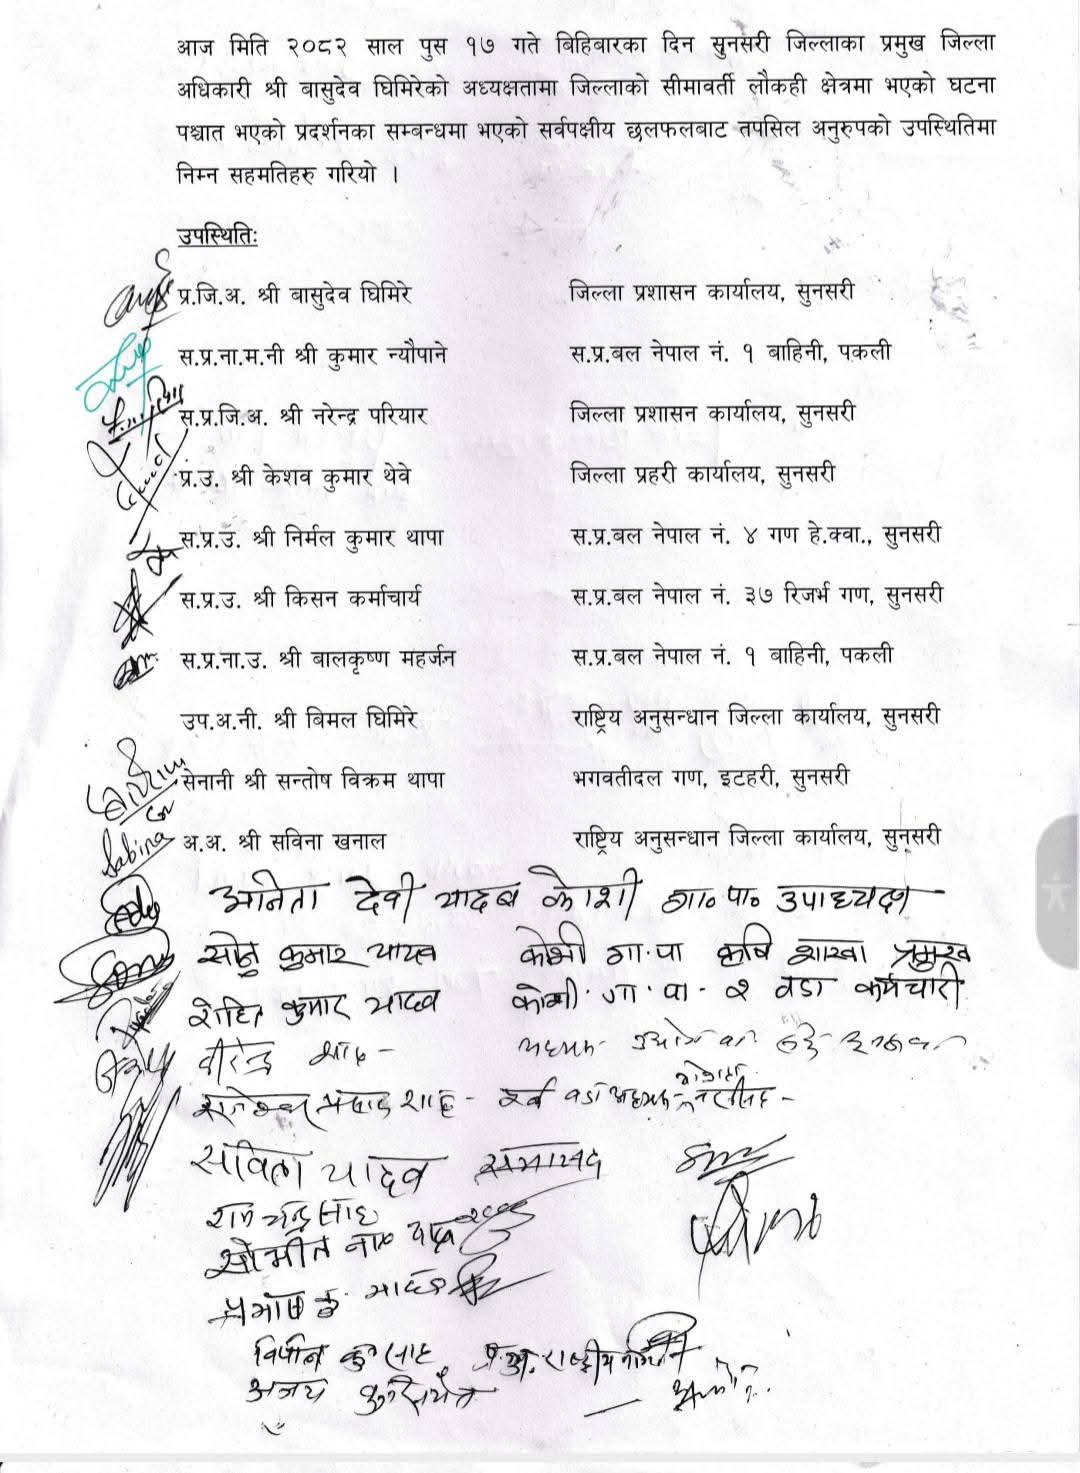 आज मिति २०८२ साल पुस १७ गते बिहिबारका दिन सुनसरी जिल्लाका प्रमुख जिल्ला
अधिकारी श्री बासुदेव घिमिरेको अध्यक्षतामा जिल्लाको सीमावर्ती लौकही क्षेत्रमा भएको घटना
पश्चात भएको प्रदर्शनका सम्बन्धमा भएको सर्वपक्षीय छलफलबाट तपसिल अनुरुपको उपस्थितिमा
निम्न सहमतिहरु गरियो ।
उपस्थितिः
प्र.जि.अ. श्री बासुदेव घिमिरे जिल्ला प्रशासन कार्यालय, सुनसरी
स.प्र.ना.म.नी श्री कुमार न्यौपाने स.प्र.बल नेपाल नं. १ बाहिनी, पकली
स.प्र.जि.अ. श्री नरेन्द्र परियार जिल्ला प्रशासन कार्यालय, सुनसरी
प्र.उ. श्री केशव कुमार थेवे जिल्ला प्रहरी कार्यालय, सुनसरी
स.प्र.उ. श्री निर्मल कुमार थापा स.प्र.बल नेपाल नं. ४ गण हे.क्वा., सुनसरी
स.प्र.उ. श्री किसन कर्माचार्य स.प्र.बल नेपाल नं. ३७ रिजर्भ गण, सुनसरी
स.प्र.ना.उ. श्री बालकृष्ण महर्जन स.प्र.बल नेपाल नं. १ बाहिनी, पकली
उप.अ.नी. श्री बिमल घिमिरे राष्ट्रिय अनुसन्धान जिल्ला कार्यालय, सुनसरी
सेनानी श्री सन्तोष विक्रम थापा भगवतीदल गण, इटहरी, सुनसरी
Sabina अ.अ. श्री सविना खनाल राष्ट्रिय अनुसन्धान जिल्ला कार्यालय, सुनसरी
अनिता देवी यादव कोशी गा० पा० उपाध्यक्ष
सोनु कुमार यादव कोशी गा.पा कृषि शाखा प्रमुख
रोहित कुमार यादव कोशी.गा.पा-२ वडा कर्मचारी
वीरेन्द्र साह -
प्रसाद शाह - पूर्व वडा अध्यक्ष
सविता यादव सभासद
राम चन्द्र साह
ना० यादव
विपीन कु साह राष्ट्रीय
अजय